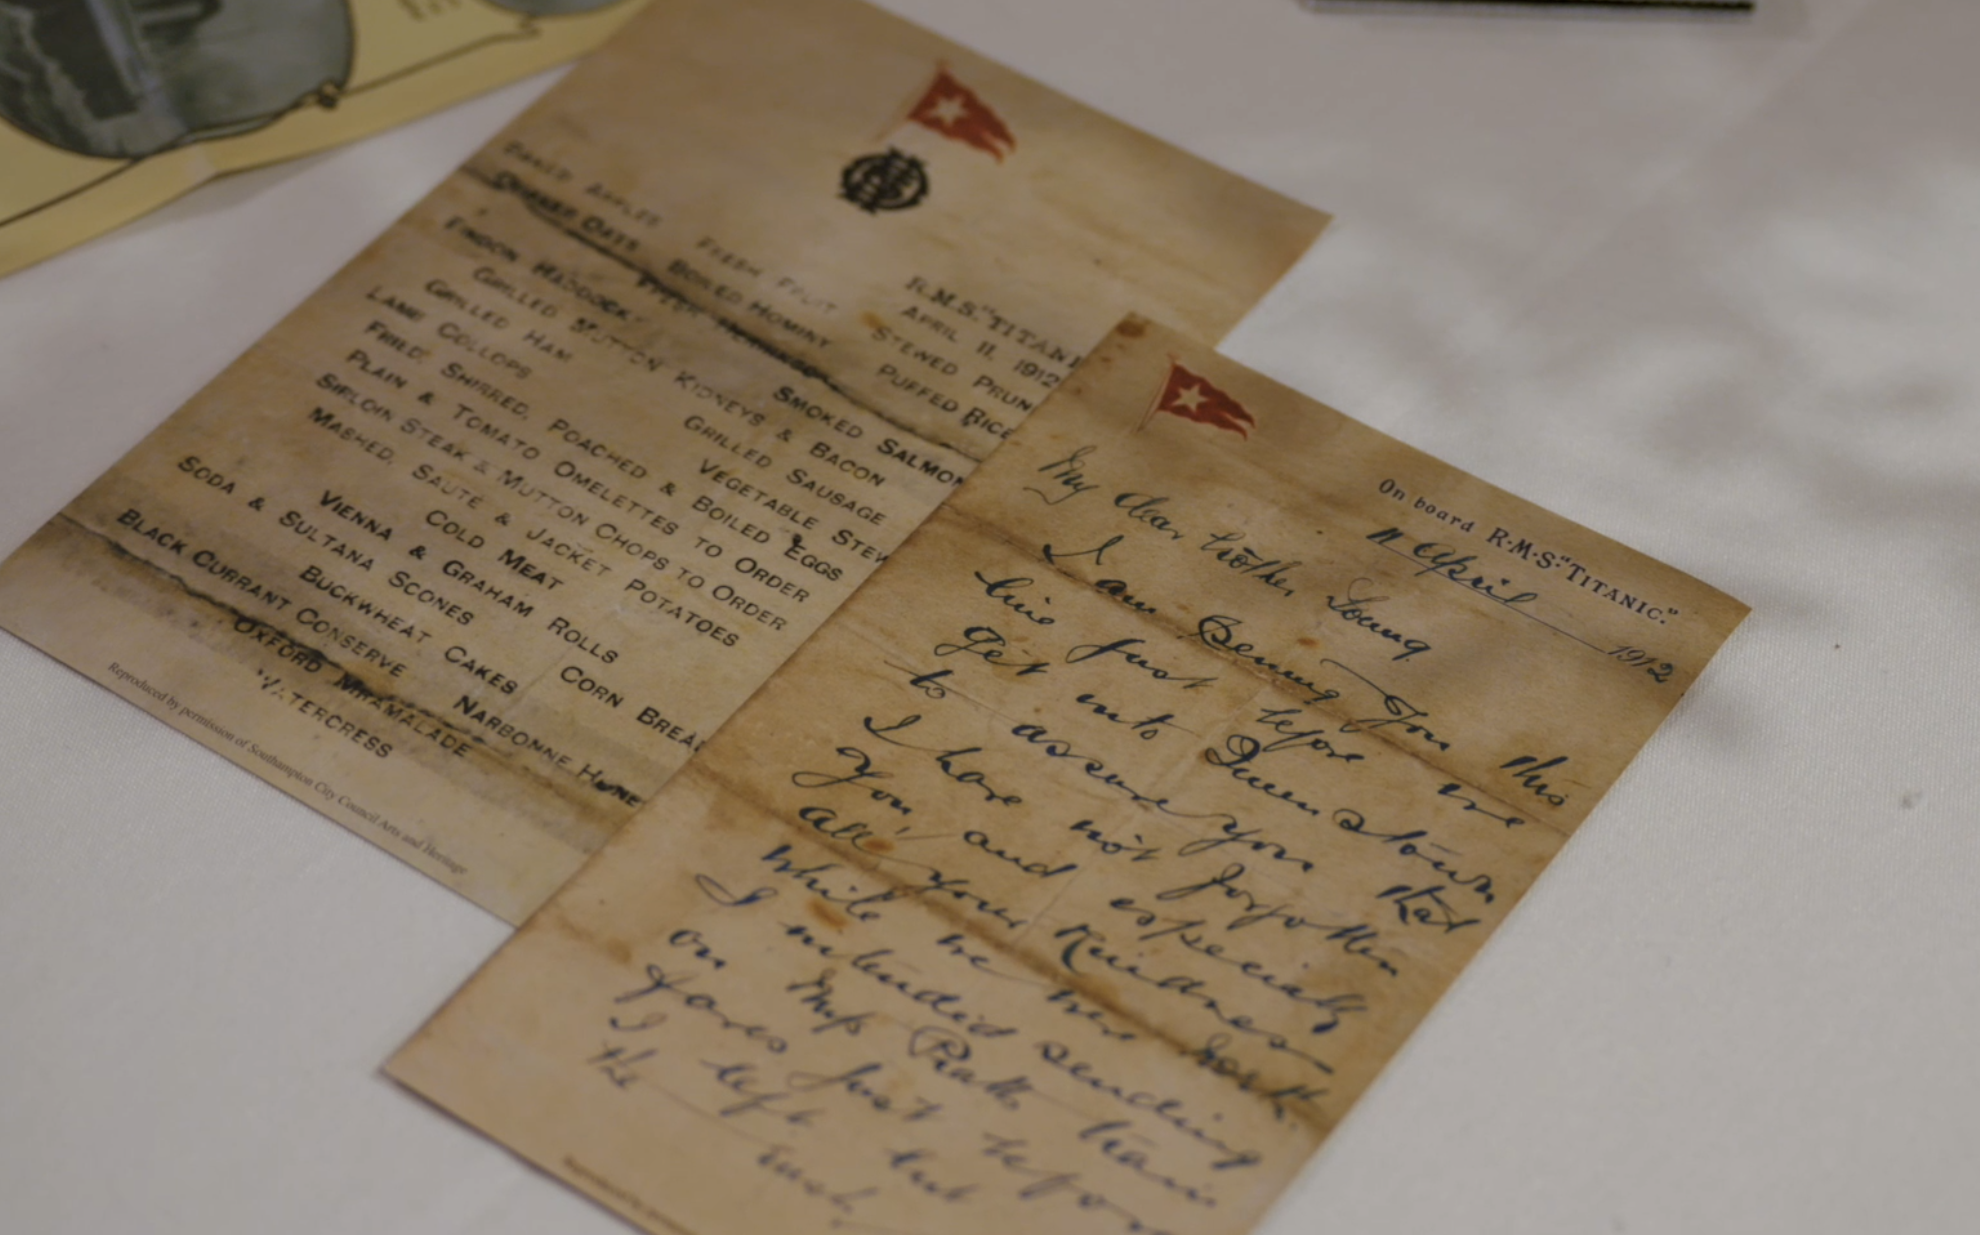 R.M.S. "TITANI
APRIL 11, 1912
BAKED APPLES FRESH FRUIT STEWED PRUN
QUAKER OATS BOILED HOMINY PUFFED RICE
FRESH HERRINGS
FINDON HADDOCK SMOKED SALMON
GRILLED MUTTON KIDNEYS & BACON
GRILLED HAM GRILLED SAUSAGE
LAMB COLLOPS VEGETABLE STEW
FRIED, SHIRRED, POACHED & BOILED EGGS
PLAIN & TOMATO OMELETTES TO ORDER
SIRLOIN STEAK & MUTTON CHOPS TO ORDER
MASHED, SAUTE & JACKET POTATOES
COLD MEAT
VIENNA & GRAHAM ROLLS
SODA & SULTANA SCONES CORN BREA
BUCKWHEAT CAKES
BLACK CURRANT CONSERVE NARBONNE HONE
OXFORD MARMALADE
WATERCRESS
Reproduced by permission of Southampton City Council Arts and Heritage
On board R.M.S. "TITANIC."
11 April 1912
My dear brother Young
I am penning you this
line just before we
get into Queenstown
to assure you that
I have not forgotten
you, and especially
all your kindness
while we were north.
I intended sending
on Mrs Pratts train
fares just before
I left but
the rush
Reproduced by